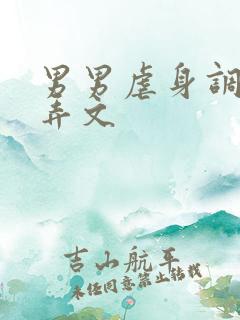 男男虐身調
弄文
吉山航平
未经同意禁止转载